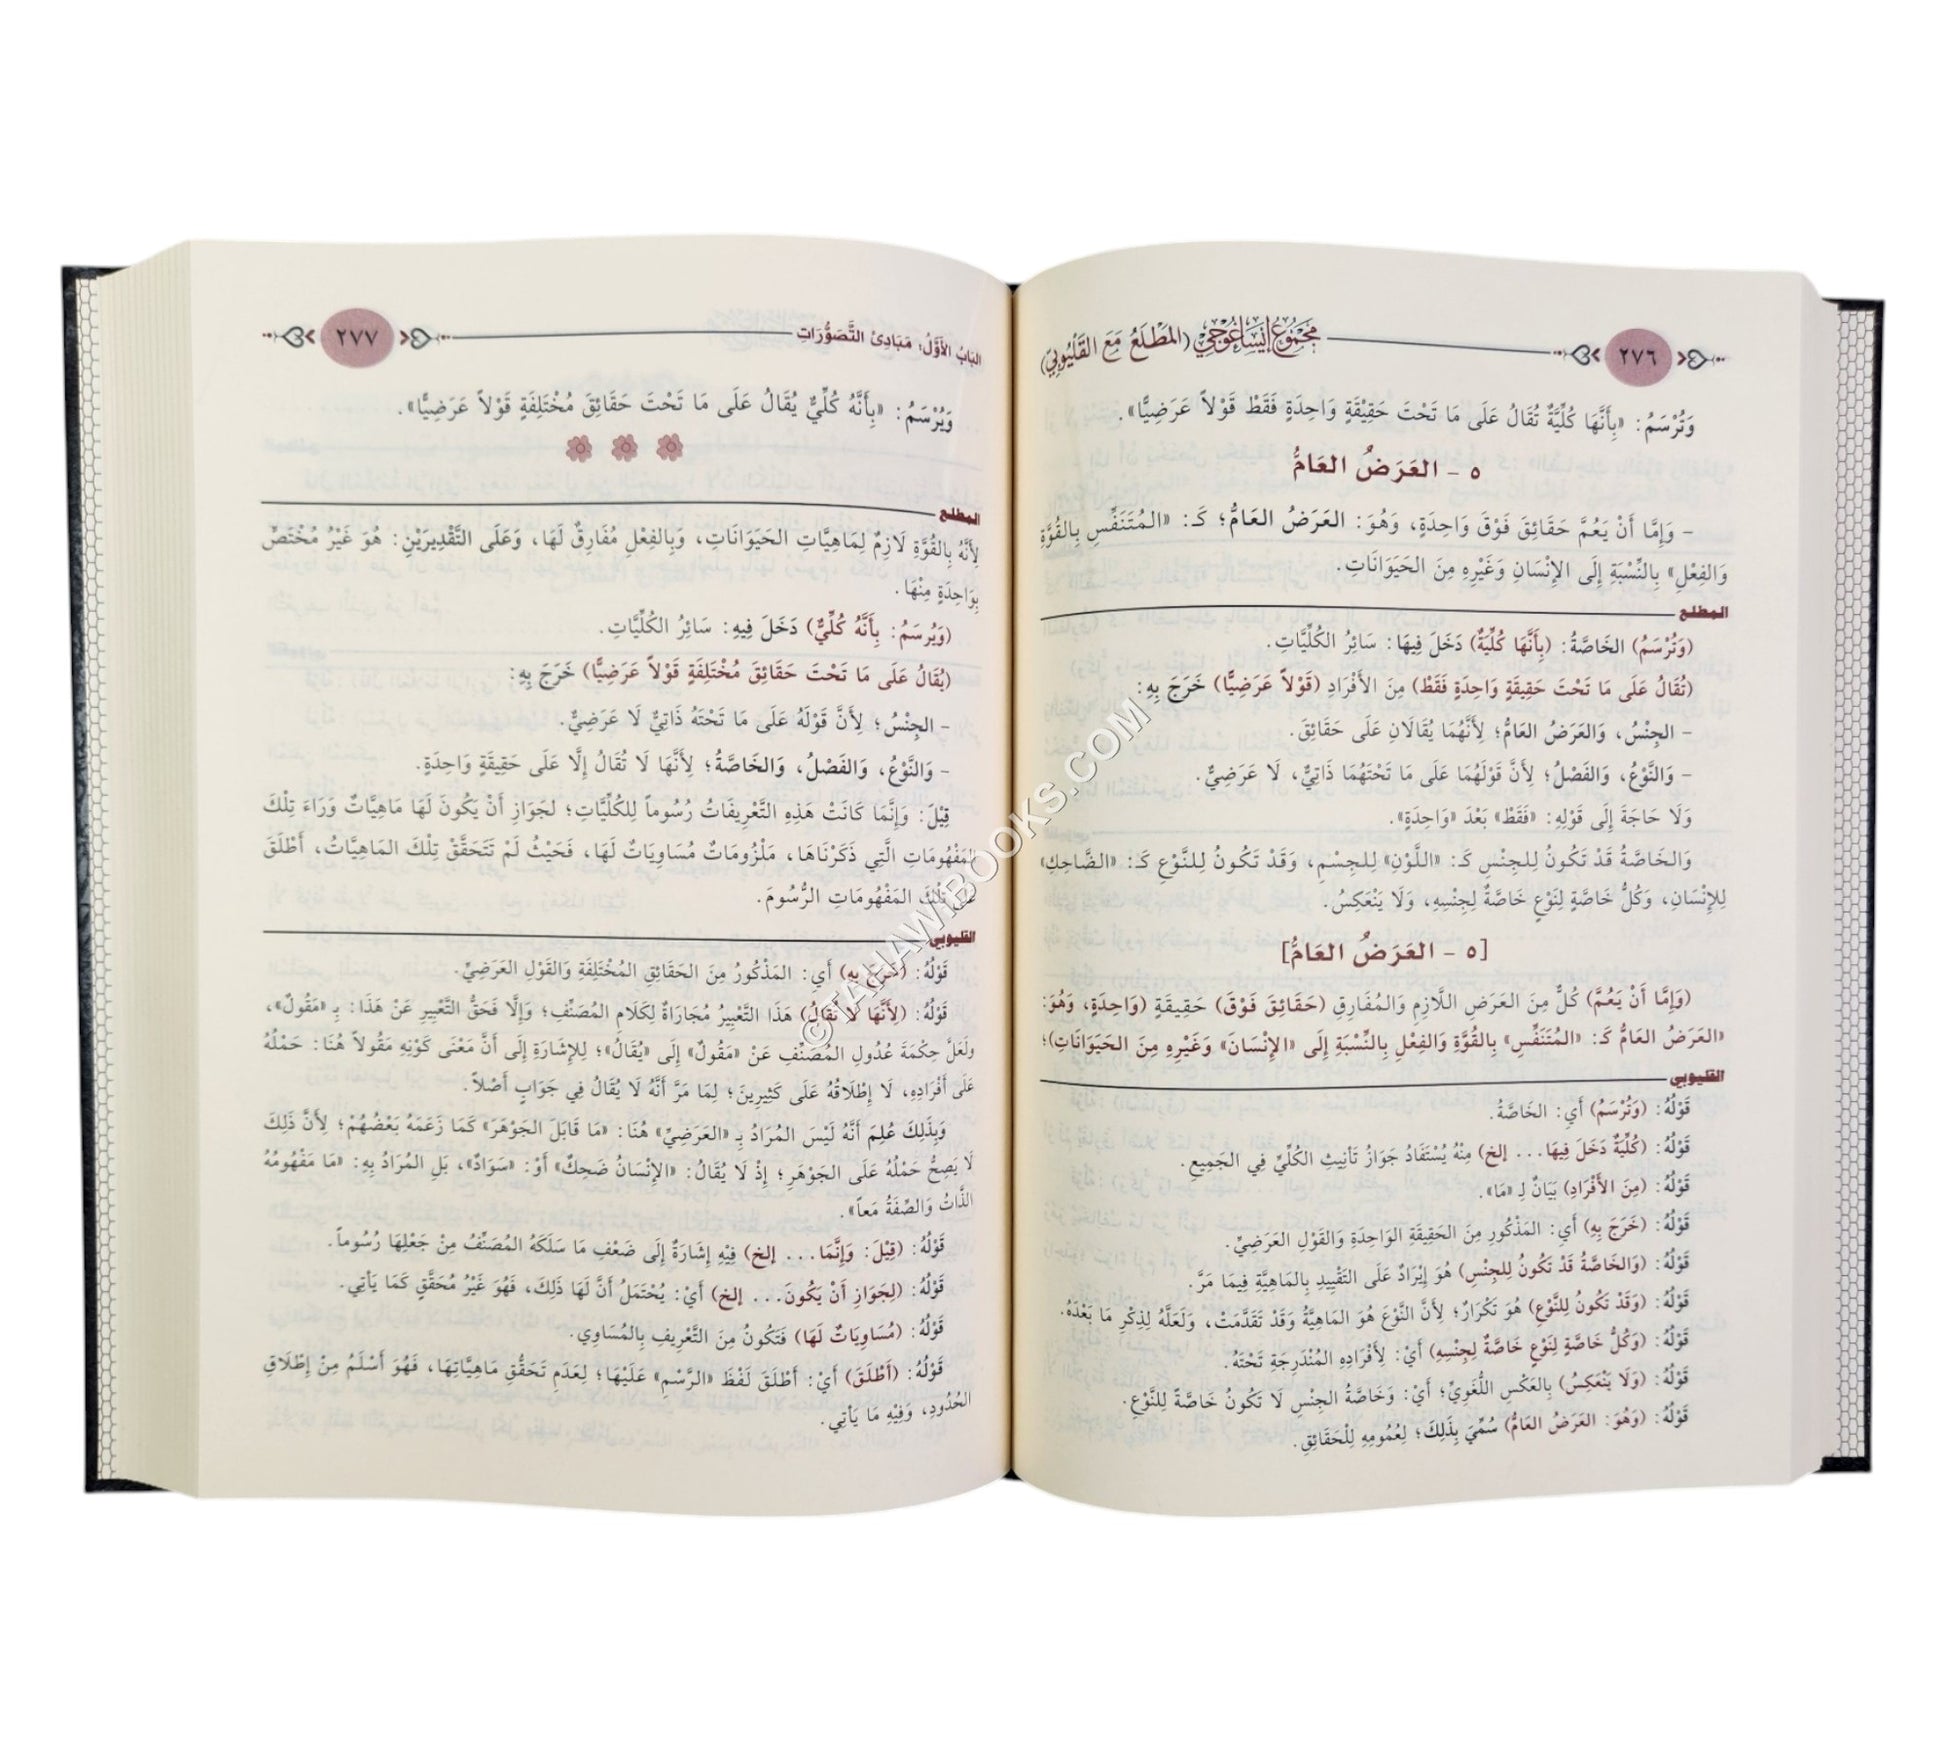 مَجْمُوعُ إِيسَاغُوجِي (المَطْلَعُ مَعَ القَلْيُوبِي)
٢٧٦
وَتُرْسَمُ: «بِأَنَّهَا كُلِّيَّةٌ تُقَالُ عَلَى مَا تَحْتَ حَقِيقَةٍ وَاحِدَةٍ فَقَطْ قَوْلاً عَرَضِيًّا».
٥ - العَرَضُ العَامُّ
- وَإِمَّا أَنْ يَعُمَّ حَقَائِقَ فَوْقَ وَاحِدَةٍ، وَهُوَ: العَرَضُ العَامُّ؛ كَـ: «المُتَنَفِّسِ بِالقُوَّةِ
وَالفِعْلِ» بِالنِّسْبَةِ إِلَى الإِنْسَانِ وَغَيْرِهِ مِنَ الحَيَوَانَاتِ.
المطلع
(وَتُرْسَمُ) الخَاصَّةُ: (بِأَنَّهَا كُلِّيَّةٌ) دَخَلَ فِيهَا: سَائِرُ الكُلِّيَّاتِ.
(تُقَالُ عَلَى مَا تَحْتَ حَقِيقَةٍ وَاحِدَةٍ فَقَطْ) مِنَ الأَفْرَادِ (قَوْلاً عَرَضِيًّا) خَرَجَ بِهِ:
- الجِنْسُ، وَالعَرَضُ العَامُّ؛ لِأَنَّهُمَا يُقَالَانِ عَلَى حَقَائِقَ.
- وَالنَّوْعُ، وَالفَصْلُ؛ لِأَنَّ قَوْلَهُمَا عَلَى مَا تَحْتَهُمَا ذَاتِيٌّ، لَا عَرَضِيٌّ.
وَلَا حَاجَةَ إِلَى قَوْلِهِ: «فَقَطْ» بَعْدَ «وَاحِدَةٍ».
وَالخَاصَّةُ قَدْ تَكُونُ لِلجِنْسِ كَـ: «اللَّوْنِ» لِلجِسْمِ، وَقَدْ تَكُونُ لِلنَّوْعِ كَـ: «الضَّاحِكِ»
لِلإِنْسَانِ، وَكُلُّ خَاصَّةٍ لِنَوْعٍ خَاصَّةٌ لِجِنْسِهِ، وَلَا يَنْعَكِسُ.
[٥ - العَرَضُ العَامُّ]
(وَإِمَّا أَنْ يَعُمَّ) كُلٌّ مِنَ العَرَضِ اللَّازِمِ وَالمُفَارِقِ (حَقَائِقَ فَوْقَ) حَقِيقَةٍ (وَاحِدَةٍ، وَهُوَ:
«العَرَضُ العَامُّ كَـ: «المُتَنَفِّسِ» بِالقُوَّةِ وَالفِعْلِ بِالنِّسْبَةِ إِلَى «الإِنْسَانَ» وَغَيْرِهِ مِنَ الحَيَوَانَاتِ)؛
القليوبي
قَوْلُهُ: (وَتُرْسَمُ) أَي: الخَاصَّةُ.
قَوْلُهُ: (كُلِّيَّةٌ دَخَلَ فِيهَا... إلخ) مِنْهُ يُسْتَفَادُ جَوَازُ تَأْنِيثِ الكُلِّيِّ فِي الجَمِيعِ.
قَوْلُهُ: (مِنَ الأَفْرَادِ) بَيَانٌ لِـ «مَا».
قَوْلُهُ: (خَرَجَ بِهِ) أَي: المَذْكُورِ مِنَ الحَقِيقَةِ الوَاحِدَةِ وَالقَوْلِ العَرَضِيِّ.
قَوْلُهُ: (وَالخَاصَّةُ قَدْ تَكُونُ لِلجِنْسِ) هُوَ إِيْرَادٌ عَلَى التَّقْيِيدِ بِالمَاهِيَّةِ فِيمَا مَرَّ.
قَوْلُهُ: (وَقَدْ تَكُونُ لِلنَّوْعِ) هُوَ تَكْرَارٌ؛ لِأَنَّ النَّوْعَ هُوَ المَاهِيَّةُ وَقَدْ تَقَدَّمَتْ، وَلَعَلَّهُ لِذِكْرِ مَا بَعْدَهُ.
قَوْلُهُ: (وَكُلُّ خَاصَّةٍ لِنَوْعٍ خَاصَّةٌ لِجِنْسِهِ) أَيْ: لِأَفْرَادِهِ المُنْدَرِجَةِ تَحْتَهُ.
قَوْلُهُ: (وَلَا يَنْعَكِسُ) بِالعَكْسِ اللُّغَوِيِّ؛ أَيْ: وَخَاصَّةُ الجِنْسِ لَا تَكُونُ خَاصَّةً لِلنَّوْعِ.
قَوْلُهُ: (وَهُوَ: العَرَضُ العَامُّ) سُمِّيَ بِذَلِكَ؛ لِعُمُومِهِ لِلْحَقَائِقِ.
البَابُ الأَوَّلُ: مَبَادِئُ التَّصَوُّرَاتِ
٢٧٧
وَيُرْسَمُ: «بِأَنَّهُ كُلِّيٌّ يُقَالُ عَلَى مَا تَحْتَ حَقَائِقَ مُخْتَلِفَةٍ قَوْلاً عَرَضِيًّا».
المطلع
لِأَنَّهُ بِالقُوَّةِ لَازِمٌ لِمَاهِيَّاتِ الحَيَوَانَاتِ، وَبِالفِعْلِ مُفَارِقٌ لَهَا، وَعَلَى التَّقْدِيرَيْنِ: هُوَ غَيْرُ مُخْتَصٍّ
بِوَاحِدَةٍ مِنْهَا.
(وَيُرسَمُ: بِأَنَّهُ كُلِّيٌّ) دَخَلَ فِيهِ: سَائِرُ الكُلِّيَّاتِ.
(يُقَالُ عَلَى مَا تَحْتَ حَقَائِقَ مُخْتَلِفَةٍ قَوْلاً عَرَضِيًّا) خَرَجَ بِهِ:
- الجِنْسُ؛ لِأَنَّ قَوْلَهُ عَلَى مَا تَحْتَهُ ذَاتِيٌّ لَا عَرَضِيٌّ.
- وَالنَّوْعُ، وَالفَصْلُ، وَالخَاصَّةُ؛ لِأَنَّهَا لَا تُقَالُ إِلَّا عَلَى حَقِيقَةٍ وَاحِدَةٍ.
قِيْلَ: وَإِنَّمَا كَانَتْ هَذِهِ التَّعْرِيفَاتُ رُسُوماً لِلكُلِّيَّاتِ؛ لجَوَازِ أَنْ يَكُونَ لَهَا مَاهِيَّاتٌ وَرَاءَ تِلْكَ
المَفْهُومَاتِ الَّتِي ذَكَرْنَاهَا، مَلْزُومَاتٌ مُسَاوِيَاتٌ لَهَا، فَحَيْثُ لَمْ تَتَحَقَّقْ تِلْكَ المَاهِيَّاتُ، أَطْلَقَ
عَلَى تِلْكَ المَفْهُومَاتِ الرُّسُومَ.
القليوبي
قَوْلُهُ: (خَرَجَ بِهِ) أَي: المَذْكُورُ مِنَ الحَقَائِقِ المُخْتَلِفَةِ وَالقَوْلِ العَرَضِيِّ.
قَوْلُهُ: (لِأَنَّهَا لَا تُقَالُ) هَذَا التَّعْبِيرُ مُجَارَاةٌ لِكَلَامِ المُصَنِّفِ؛ وَإِلَّا فَحَقُّ التَّعْبِيرِ عَنْ هَذَا: بِـ «مَقُولٌ»،
وَلَعَلَّ حِكْمَةَ عُدُولِ المُصَنِّفِ عَنْ «مَقُولٌ» إِلَى «يُقَالُ»؛ لِلإِشَارَةِ إِلَى أَنَّ مَعْنَى كَوْنِهِ مَقُولاً هُنَا: حَمْلُهُ
عَلَى أَفْرَادِهِ، لَا إِطْلَاقُهُ عَلَى كَثِيرِينَ؛ لِمَا مَرَّ أَنَّهُ لَا يُقَالُ فِي جَوَابٍ أَصْلاً.
وَبِذَلِكَ عُلِمَ أَنَّهُ لَيْسَ المُرَادُ بِـ «العَرَضِيِّ» هُنَا: «مَا قَابَلَ الجَوْهَرَ» كَمَا زَعَمَهُ بَعْضُهُمْ؛ لِأَنَّ ذَلِكَ
لَا يَصِحُّ حَمْلُهُ عَلَى الجَوْهَرِ؛ إِذْ لَا يُقَالُ: «الإِنْسَانُ ضَحِكٌ» أَوْ: «سَوَادٌ»، بَلِ المُرَادُ بِهِ: «مَا مَفْهُومُهُ
الذَّاتُ وَالصِّفَةُ مَعاً».
قَوْلُهُ: (قِيْلَ: وَإِنَّمَا... إلخ) فِيْهِ إِشَارَةٌ إِلَى ضَعْفِ مَا سَلَكَهُ المُصَنِّفُ مِنْ جَعْلِهَا رُسُوماً.
قَوْلُهُ: (لِجَوَازِ أَنْ يَكُونَ... إلخ) أَيْ: يُحْتَمَلُ أَنَّ لَهَا ذَلِكَ، فَهُوَ غَيْرُ مُحَقَّقٍ كَمَا يَأتِي.
قَوْلُهُ: (مُسَاوِيَاتٌ لَهَا) فَتَكُونُ مِنَ التَّعْرِيفِ بِالمُسَاوِي.
قَوْلُهُ: (أَطْلَقَ) أَيْ: أَطْلَقَ لَفْظَ «الرَّسْمِ» عَلَيْهَا؛ لِعَدَمِ تَحَقُّقِ مَاهِيَّاتِهَا، فَهُوَ أَسْلَمُ مِنْ إِطْلَاقِ
الحُدُودِ، وَفِيْهِ مَا يَأتِي.
© TAHAWIBOOKS.COM